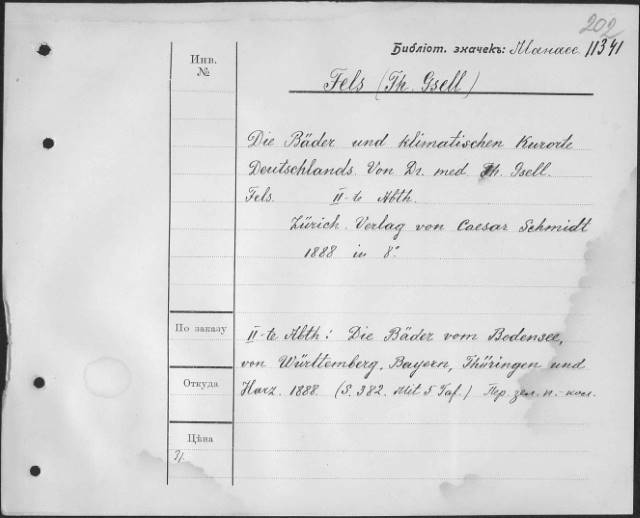 202
Библіот. значекъ: Манасс. 11341
Инв.
№
Fels (Th. Gsell)
Die Bäder und klimatischen Kurorte
Deutschlands. Von Dr. med. Th. Gsell.
Fels. II-te Abth.
Zürich. Verlag von Caesar Schmidt
1888 in 8°.
По заказу
II-te Abth: Die Bäder vom Bodensee,
von Württemberg, Bayern, Thüringen und
Откуда
Harz. 1888. (S. 382. Mit 5 Taf.) Пер. зел. п.-кол.
Цѣна